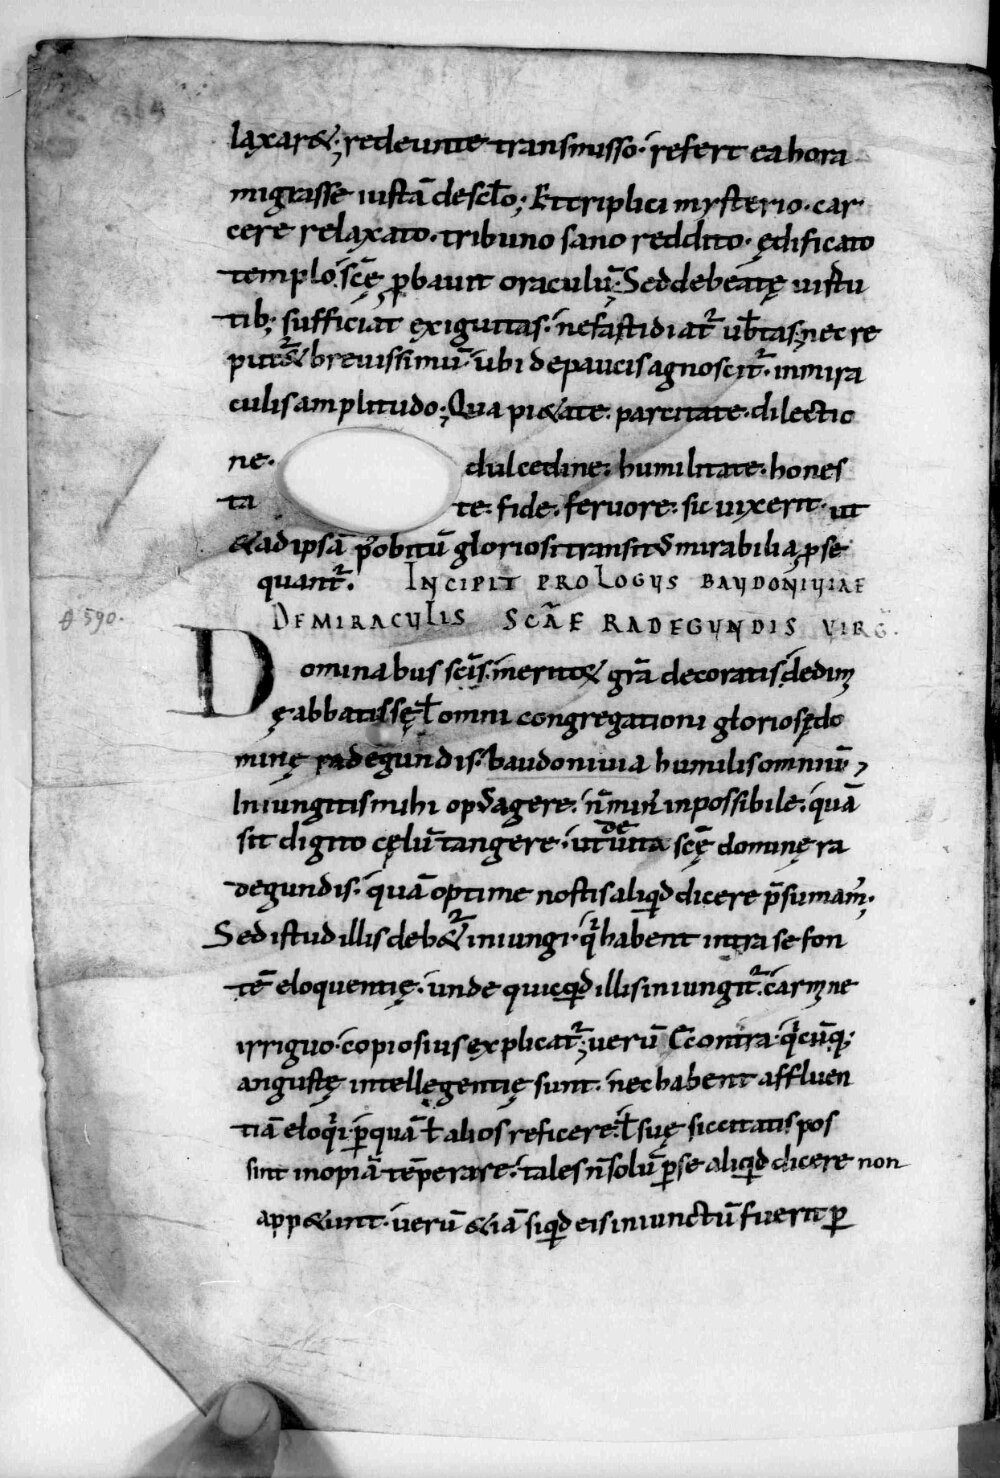 laxar&; redeunte transmisso· refert ea hora
migrasse iustā de scło; Et triplici mysterio· car
cere relaxato· tribuno sano reddito· ędificato
templo· scę̄ ꝓbauit oraculū; Sed de beatę uirtu
tib; sufficiat exiguitas· ne fastidiat᷑ ubtas· nec re
put&᷑ breuissimū· ubi de paucis agnoscit᷑· in mira
culis amplitudo; Qua pi&ate· parcitate· dilectio
ne· dulcedine· humilitate· hones
ta te· fide· feruore· sic uixerit· ut
& ad ipsā p̄ obitū gloriosi transitꝰ mirabilia ꝓse
quant᷑· INCIPIT PROLOGUS BAUDONIUIAE
DE MIRACULIS SCĀE RADEGUNDIS VIRG̅·
θ 590·
Dominabus scīs· merito& grā decoratis· dedim
ę abbatissę ł omni congregationi gloriosę do
minę radegundis· baudoniuia humilis omniū;
Iniungitis mihi opꝰ agere· n̄ min' inpossibile· quā
sit digito cęlū tangere· ut de uita scę̄ dominę ra
degundis· quā optime nostis aliqd dicere p̄sumam;·
Sed istud illis deb&᷑ iniungi· q̇ habent intra se fon
tē eloquentię· unde quicqd illis iniungit᷑· carmine
irriguo· copiosius explicat᷑; uerū econtra· q̇cūq;
angustę intellegentię sunt· nec habent affluen
tiā eloq̇i· ꝑ quā ł alios reficere· ł suę siccitatis pos
sint inopiā tēperare· tales n̄ solū ꝑ se aliqd dicere non
app&unt· uerū &iā siqd eis iniunctū fuerit ꝑ